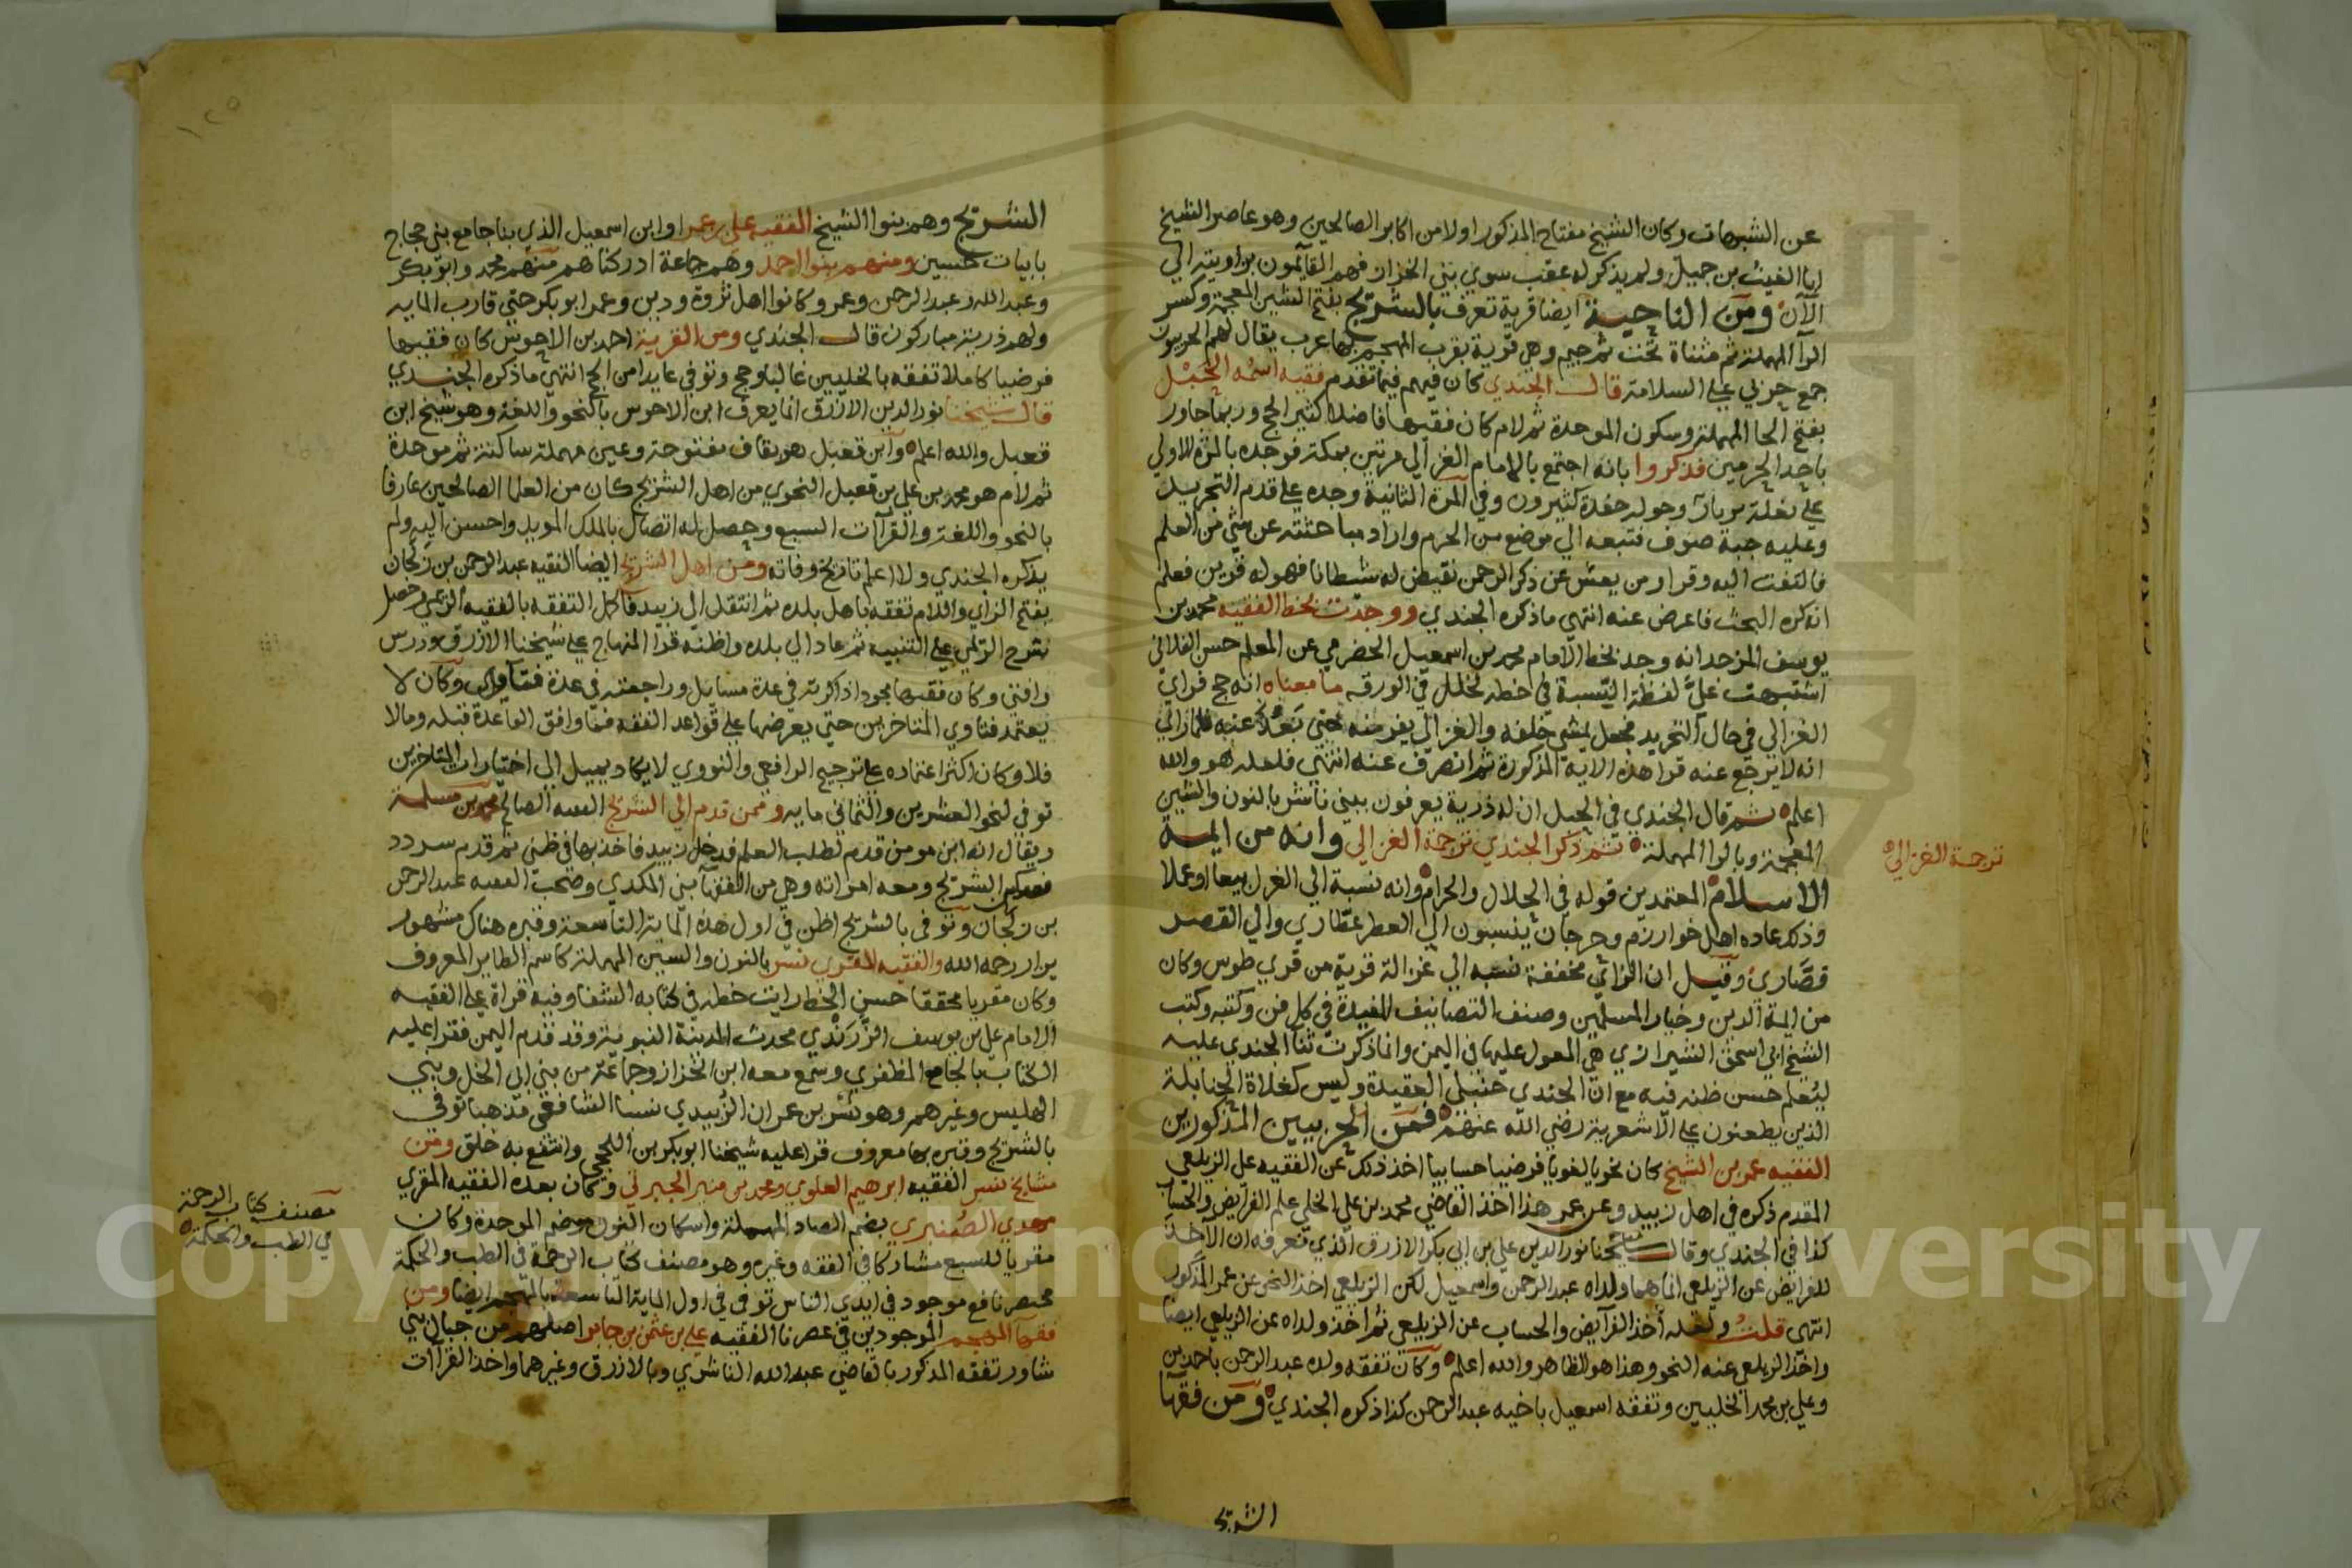 عن الشبهات وكان الشيخ مفتاح المذكور اولا من اكابر الصالحين وهو عاصر الشيخ
ابا الغيث بن جميل ولم يذكر له عقب سوي بني الخزان فهم القايمون بزاويته الي
الآن ومن الناحية ايضا قرية تعرف بالشريج بفتح الشين المعجمة وكسر
الرآ المهملة ثم مثناة تحت ثم جيم وهي قرية بقرب المهجم يسكنها عرب يقال لهم الحربيون
جمع حربي علي السلامة قال الجندي كان فيهم فيما تقدم فقيه اسمه الحَبْل
بفتح الحا المهملة وسكون الموحدة ثم لام كان فقيها فاضلا كثير الحج وربما جاور
باحد الحرمين فذكروا بانه اجتمع بالامام الغزالي مرتين بمكة فوجده بالمرة الاولي
علي بغلة وحوله حفدة كثيرون وفي المرة الثانية وجده علي قدم التجريد
وعليه جبة صوف فتبعه الي موضع من الحرم واراد مباحثته عن شي من العلم
فالتفت اليه وقرا ومن يعش عن ذكر الرحمن نقيض له شيطانا فهو له قرين فعلم
انه كره البحث فاعرض عنه انتهي ما ذكره الجندي ووجدت بخط الفقيه محمد بن
يوسف المزحد انه وجد بخط الامام محمد بن اسمعيل الحضرمي عن المعلم حسن الفلاني
اشتبهت عليَّ لفظة النسبة في خطه لخلل في الورقه ما معناه انه حج فراي
الغزالي في حال التجريد فجعل يمشي خلفه والغزالي يفر منه حتي بَعُد عنه فلما راي
انه لا يرجع عنه قرا هذه الاية المذكورة ثم انصرف عنه انتهي فلعله هو والله
اعلم ثم قال الجندي في الحبل ان له ذرية يعرفون ببني ناشر بالنون والشين
المعجمة وبالرا المهملة ثم ذكر الجندي ترجمة الغزالي وانه من ايمة
ترجمة الغزالي
الاسلام المعتمدين قوله في الحلال والحرام وانه نسبة الي الغزل بيعا او عملا
وذلك عاده اهل خوارزم وجرجان ينسبون الي العطر عطّاري والي القصر
قصَّاري وقيل ان الزاي مخففة نسبه الي غزالة قرية من قري طوس وكان
من ايمة الدين وخيار المسلمين وصنف التصانيف المفيدة في كل فن وكتبه وكتب
الشيخ ابي اسحق الشيرازي هي المعول عليها في اليمن وانما ذكرت ثنا الجندي عليه
ليُعلم حسن ظنه فيه مع انّ الجندي حنبلي العقيدة وليس كغلاة الحنابلة
الذين يطعنون علي الاشعرية رضي الله عنهم فمن الحربيين المذكورين
الفقيه عمر بن الشيخ كان نحويا لغويا فرضيا حسابيا اخذ ذلك عن الفقيه علي الزيلعي
المقدم ذكره في اهل زبيد وعن عمر هذا اخذ القاضي محمد بن علي الخلي علم الفرايض والحساب
كذا في الجندي وقال شيخنا نور الدين علي بن ابي بكر الازرق الذي نعرفه ان الآخذ
للفرايض عن الزيلعي انما هما ولداه عبد الرحمن واسمعيل لكن الزيلعي اخذ النحو عن عمر المذكور
انتهي قلت ولعله أخذ الفرآيض والحساب عن الزيلعي ثم اخذ ولداه عن الزيلعي ايضا
واخذ الزيلعي عنه النحو وهذا هو الظاهر والله اعلم وكان تفقه ولده عبد الرحمن باحمد بن
وعلي بن محمد الخليين وتفقه اسمعيل باخيه عبد الرحمن كذا ذكره الجندي ومن فقهآ
الشريج
١٢٥
الشريج وهم بنوا الشيخ الفقيه علي بن عمر او ابن اسمعيل الذي بنا جامع بني حجاج
بابيات حسين ومنهم بنو وهم جماعة ادركنا هم منهم محمد وابو بكر
وعبد الله وعبد الرحمن وعمر وكانوا اهل ثروة ودين وعمر ابو بكر حتي قارب الماية
ولهم ذرية مباركون قال الجندي ومن القرية احمد بن الاحوس كان فقيها
فرضيا كاملا تفقه بالخليين غالبا وحج وتوفي عايدا من الحج انتهي ما ذكره الجندي
قال شيخنا نور الدين الازرق انما يعرف ابن الاحوس بالنحو واللغة وهو شيخ ابن
قعبل والله اعلم وابن قعبل هو بقاف مفتوحة وعين مهملة ساكنة ثم موحدة
ثم لام هو محمد بن علي بن قعبل النحوي من اهل الشريج كان من العلما الصالحين عارفا
بالنحو واللغة والقرآات السبع وحصل له اتصال بالملك المويد واحسن اليه ولم
يذكره الجندي ولا اعلم تاريخ وفاته ومن اهل الشريج ايضا الفقيه عبد الرحمن بن زَكجان
بفتح الزاي واللام تفقه باهل بلده ثم انتقل الي زبيد فاكمل التفقه بالفقيه وحصل
شرح علي التنبيه ثم عاد الي بلده واظنّه قرا المنهاج علي شيخنا الازرق ودرس
وافتي وكان فقيها مجودا ذاكرته في عدة مسايل وراجعته في عدة فتاوي وكان لا
يعتمد فتاوي المتاخرين حتي يعرضها علي قواعد الفقه فما وافق القاعدة قبله ومالا
فلا وكان اكثر اعتماده علي ترجيح الرافعي والنووي لا يكاد يميل الي اختيارات المتاخرين
توفي لنحو العشرين والثماني مايه وممن قدم الي الشريج الفقيه الصالح محمد بن مسلمة
ويقال انه ابن مومن قدم لطلب العلم فدخل زبيد فاخذ بها في ظني ثم قدم سردد
فسكن الشريج ومعه امراته وهي من الفقهآ بني المكدي وصحب الفقيه عبد الرحمن
بن زكجان وتوفي بالشريج اظن في اول هذه الماية التاسعة وقبره هناك مشهور
يزار رحمه الله والفقيه المقري نسر بالنون والسين المهملة كاسم الطاير المعروف
وكان مقريا محققا حسن الخط رايت خطه في كتابه الشفا وفيه قراة علي الفقيه
الامام علي بن يوسف الزَّرَندي محدث المدينة النبوية وقد قدم اليمن فقرا عليه
الكتاب بالجامع المظفري وسمع معه ابن الخزاز وجماعة من بني ابي الخل وبني
الهليس وغيرهم وهو نسر بن عمران الزُبيدي نسبا الشافعي مذهبا توفي
بالشريج وقبره بها معروف قرا عليه شيخنا ابو بكر بن اللحجي وانتفع به خلق ومن
مشايخ نسر الفقيه ابرهيم العلوي ومحمد بن منير الجبرتي وكان بعده الفقيه المقري
مهدي الصُنبري بضم الصاد المهملة واسكان النون وضم الموحدة وكان
مقريا للسبع مشاركا في الفقه وغيره وهو مصنف كتاب الرحمة في الطب والحكمة
مصنف كتاب الرحمة
في الطب والحكمة
مختصر نافع موجود في ايدي الناس توفي في اول الماية التاسعة بالمهجم ايضا ومن
فقهآ المهجم الموجودين في عصرنا الفقيه علي بن عثمن بن جابر اصلهم من جبال بني
شاور تفقه المذكور بالقاضي عبد الله الناشري وبالازرق وغيرهما واخذ القرآات